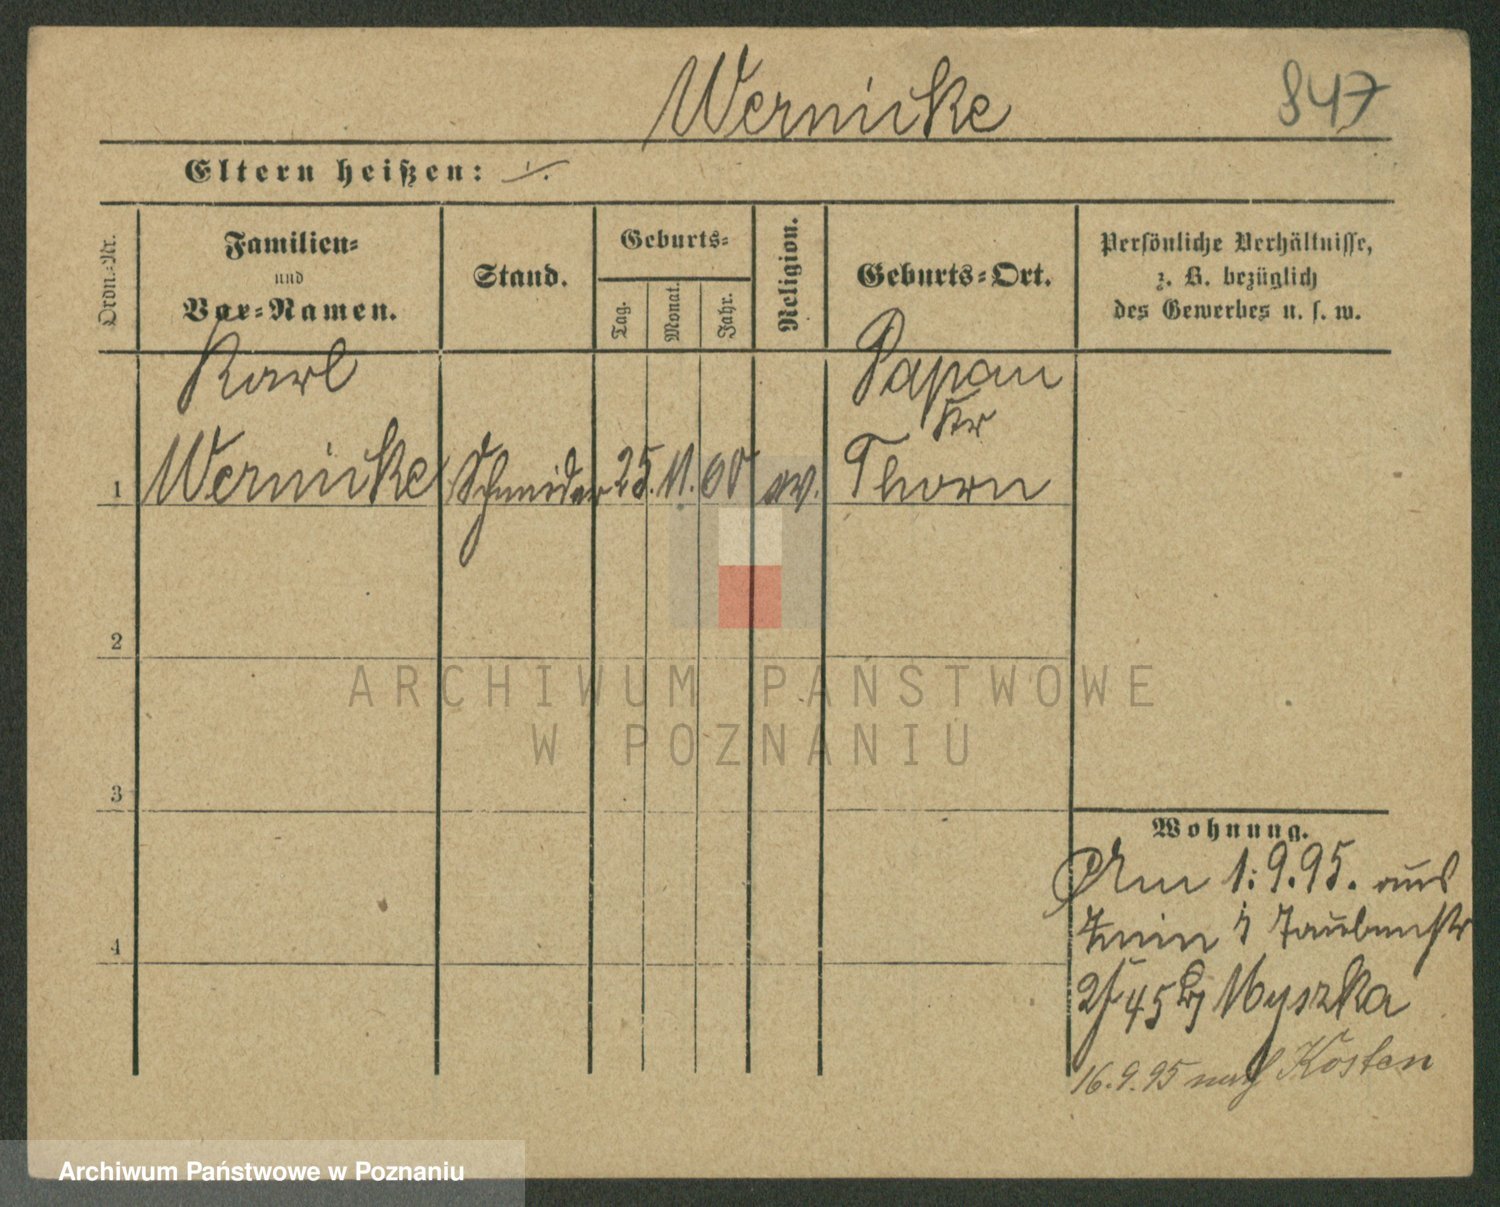 Wernicke 847
Eltern heißen: ./.
Ordn.-Nr.
Familien-
und
Vor-Namen.
Stand.
Geburts-
Tag.
Monat.
Jahr.
Religion.
Geburts-Ort.
Persönliche Verhältnisse,
z. B. bezüglich
des Gewerbes u. s. w.
Karl
Papau
Kr
1 Wernicke Schneider 25. 11. 60 ev. Thorn
2
3
4
Wohnung.
Am 1. 9. 95. aus
Znin Taubenstr
2/45 bj Myszka
16.9.95 nach Kosten
ARCHIWUM PAŃSTWOWE
W POZNANIU
Archiwum Państwowe w Poznaniu